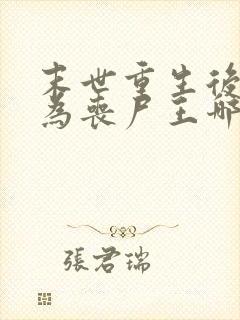 末世重生後
為喪尸王哪
張君瑞